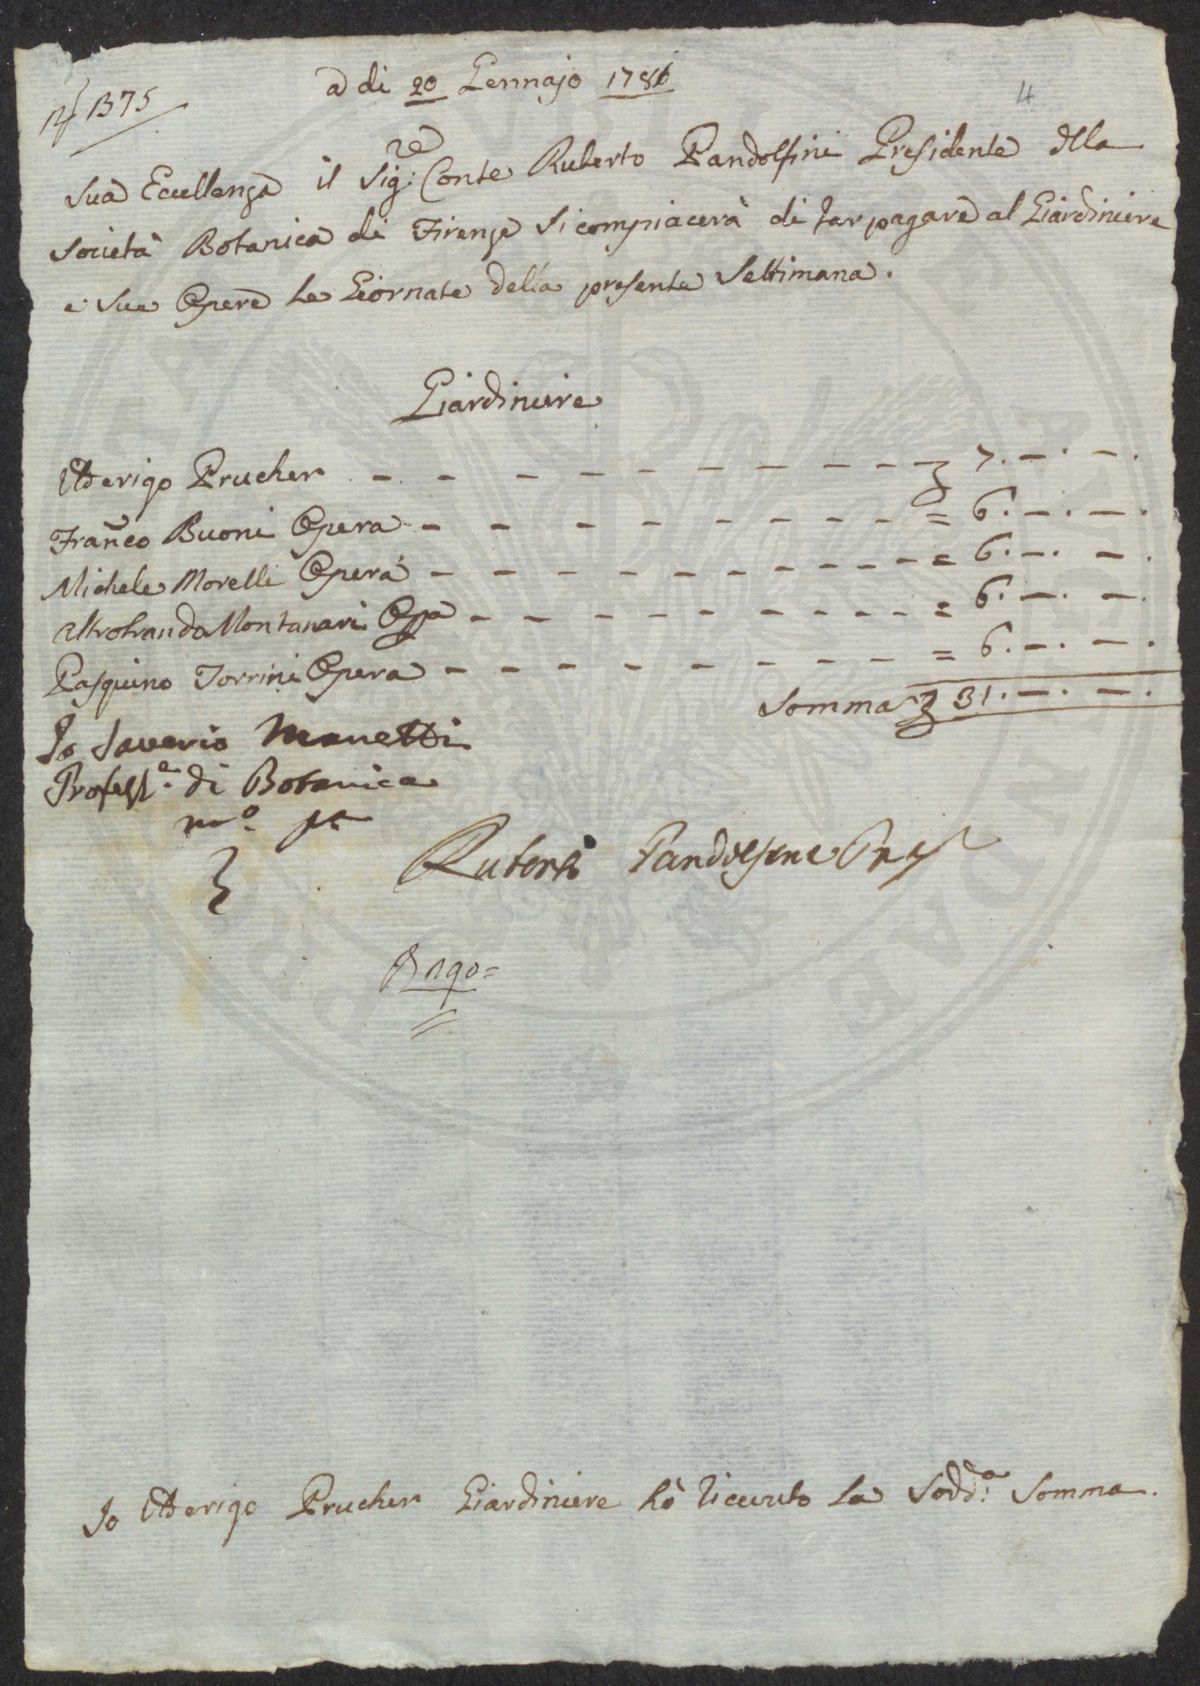 a di 20 Gennajo 1781
4
N 1375
Sua Eccellenza il Sig:re Conte Ruberto Pandolfini Presidente della
Società Botanica di Firenze si compiacerà di far pagare al Giardiniere
e Sue Opere le Giornate della presente Settimana.
Giardiniere
Aderigo Prucher — — — — — — — — — — 7. —. —.
Franco Buoni Opera — — — — — — — — = 6. —. —.
Michele Morelli Opera — — — — — — — — — = 6. —. —.
Montanari Oppa — — — — — — — — — = 6. —. —.
Pasquino Torrini Opera — — — — — — — — = 6. —. —.
Somma 31. —. —.
Io Saverio Manetti
Profess.e di Botanica
m.o p.a
Ruberto Pandolfini Pres
Io Aderigo Prucher Giardiniere hò ricevuto la Sodd:a Somma.